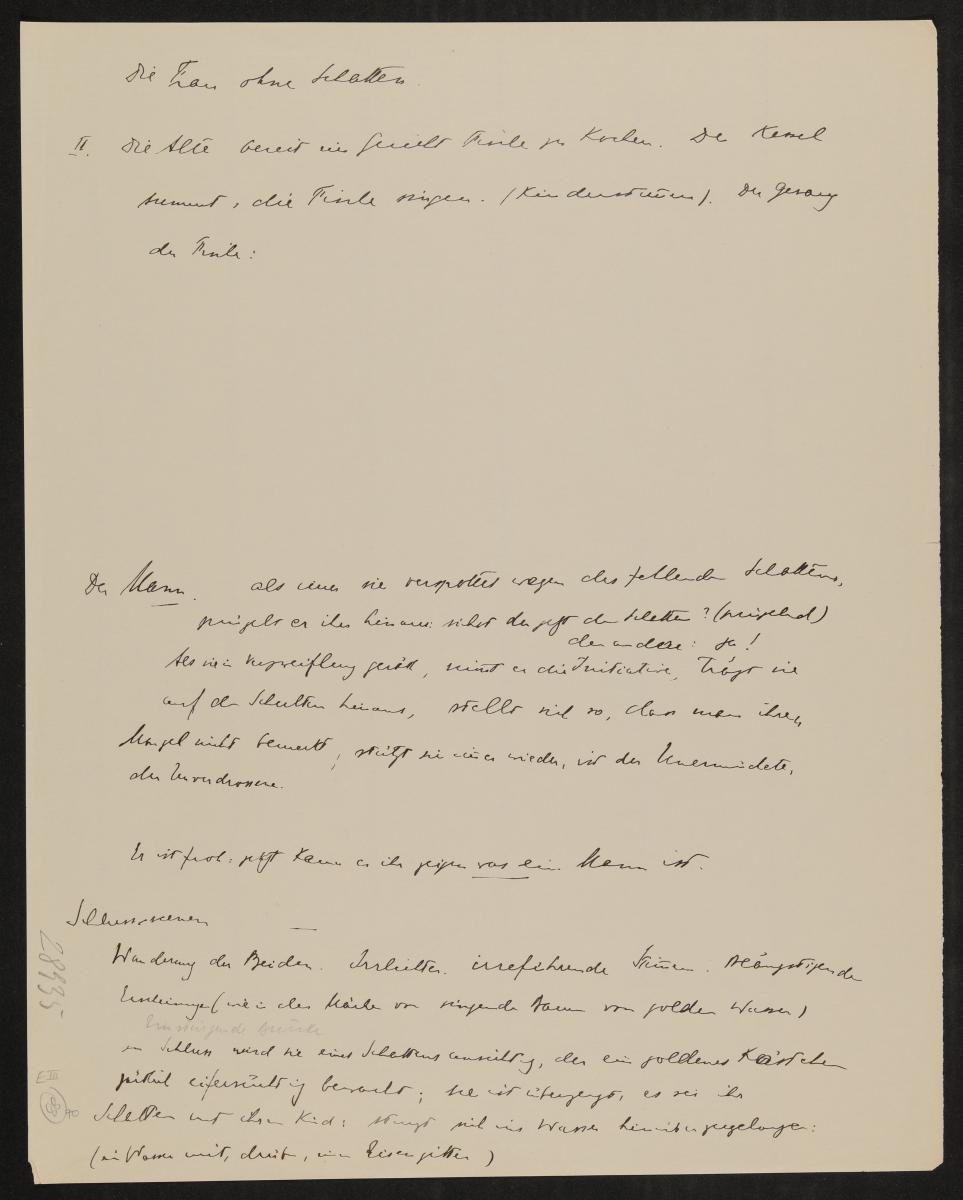 Die Frau ohne Schatten.
II. Die Alte bereit ein Gericht Fische zu Kochen. Der Kessel
summt, die Fische singen. (Kinderstimmen). Der Gesang
der Fische:
Der Mann. als einer sie verspottet wegen des fehlenden Schattens,
prügelt er ihn hinaus: siehst du jetzt den Schatten? (prügelnd)
der andere: Ja!
Als sie in Verzweiflung gerät, nimmt er die Initiative, trägt sie
auf den Schultern hinaus, stellt sich so, dass man ihren
Mangel nicht bemerkt, stützt sie immer wieder, ist der Unermüdete,
der Unverdrossene.
Er ist froh: jetzt kann er ihr zeigen was ein Mann ist.
Schlussscenen
Wanderung der Beiden. Irrlichter. irreführende Stimmen. Beängstigende
Erscheinungen (wie in dem Märchen vom singenden Baum vom golden Wasser)
Einsteigende
am Schluss wird sie eines Schattens ansichtig, der ein goldenes Kästchen
eifersüchtig bewacht; sie ist überzeugt, es sei ihr
Schatten mit ihrem Kind: stürzt sich ins Wasser hinüberzugelangen:
(im Wasser mit, ein Eisengitter)
28935
E III
89
40